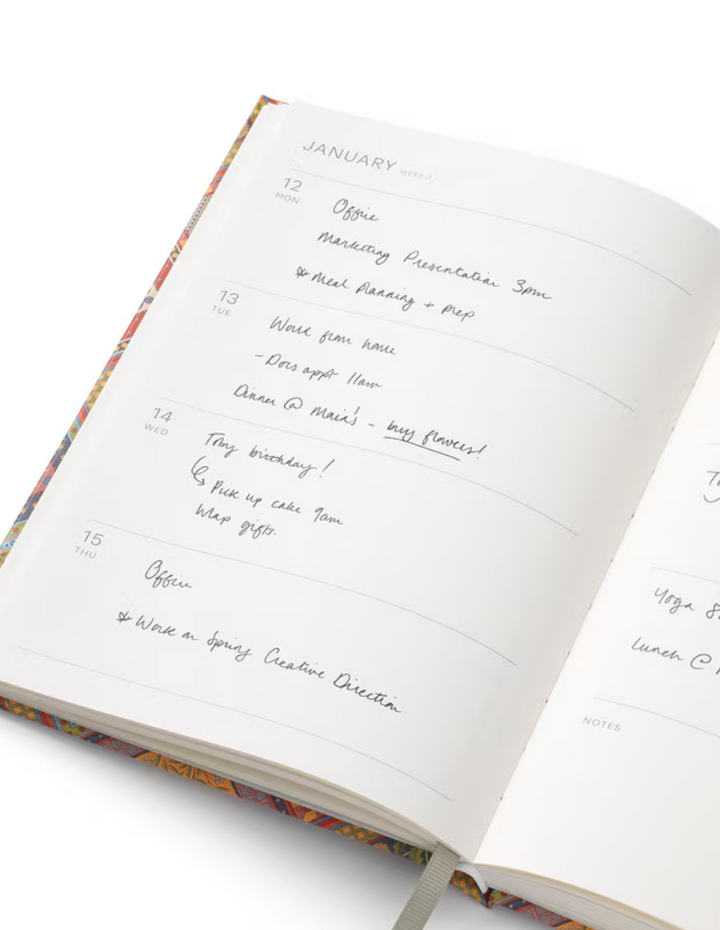 JANUARY WEEK 3
12
MON
Office
Marketing Presentation 3pm
* Meal Planning + prep
13
TUE
Work from home
- Docs appt 11am
Dinner @ Main's - buy flowers!
14
WED
Tomy birthday!
Pick up cake 9am
Wrap gifts.
15
THU
Office
* Work on Spring Creative Direction
Yoga
Lunch @
NOTES